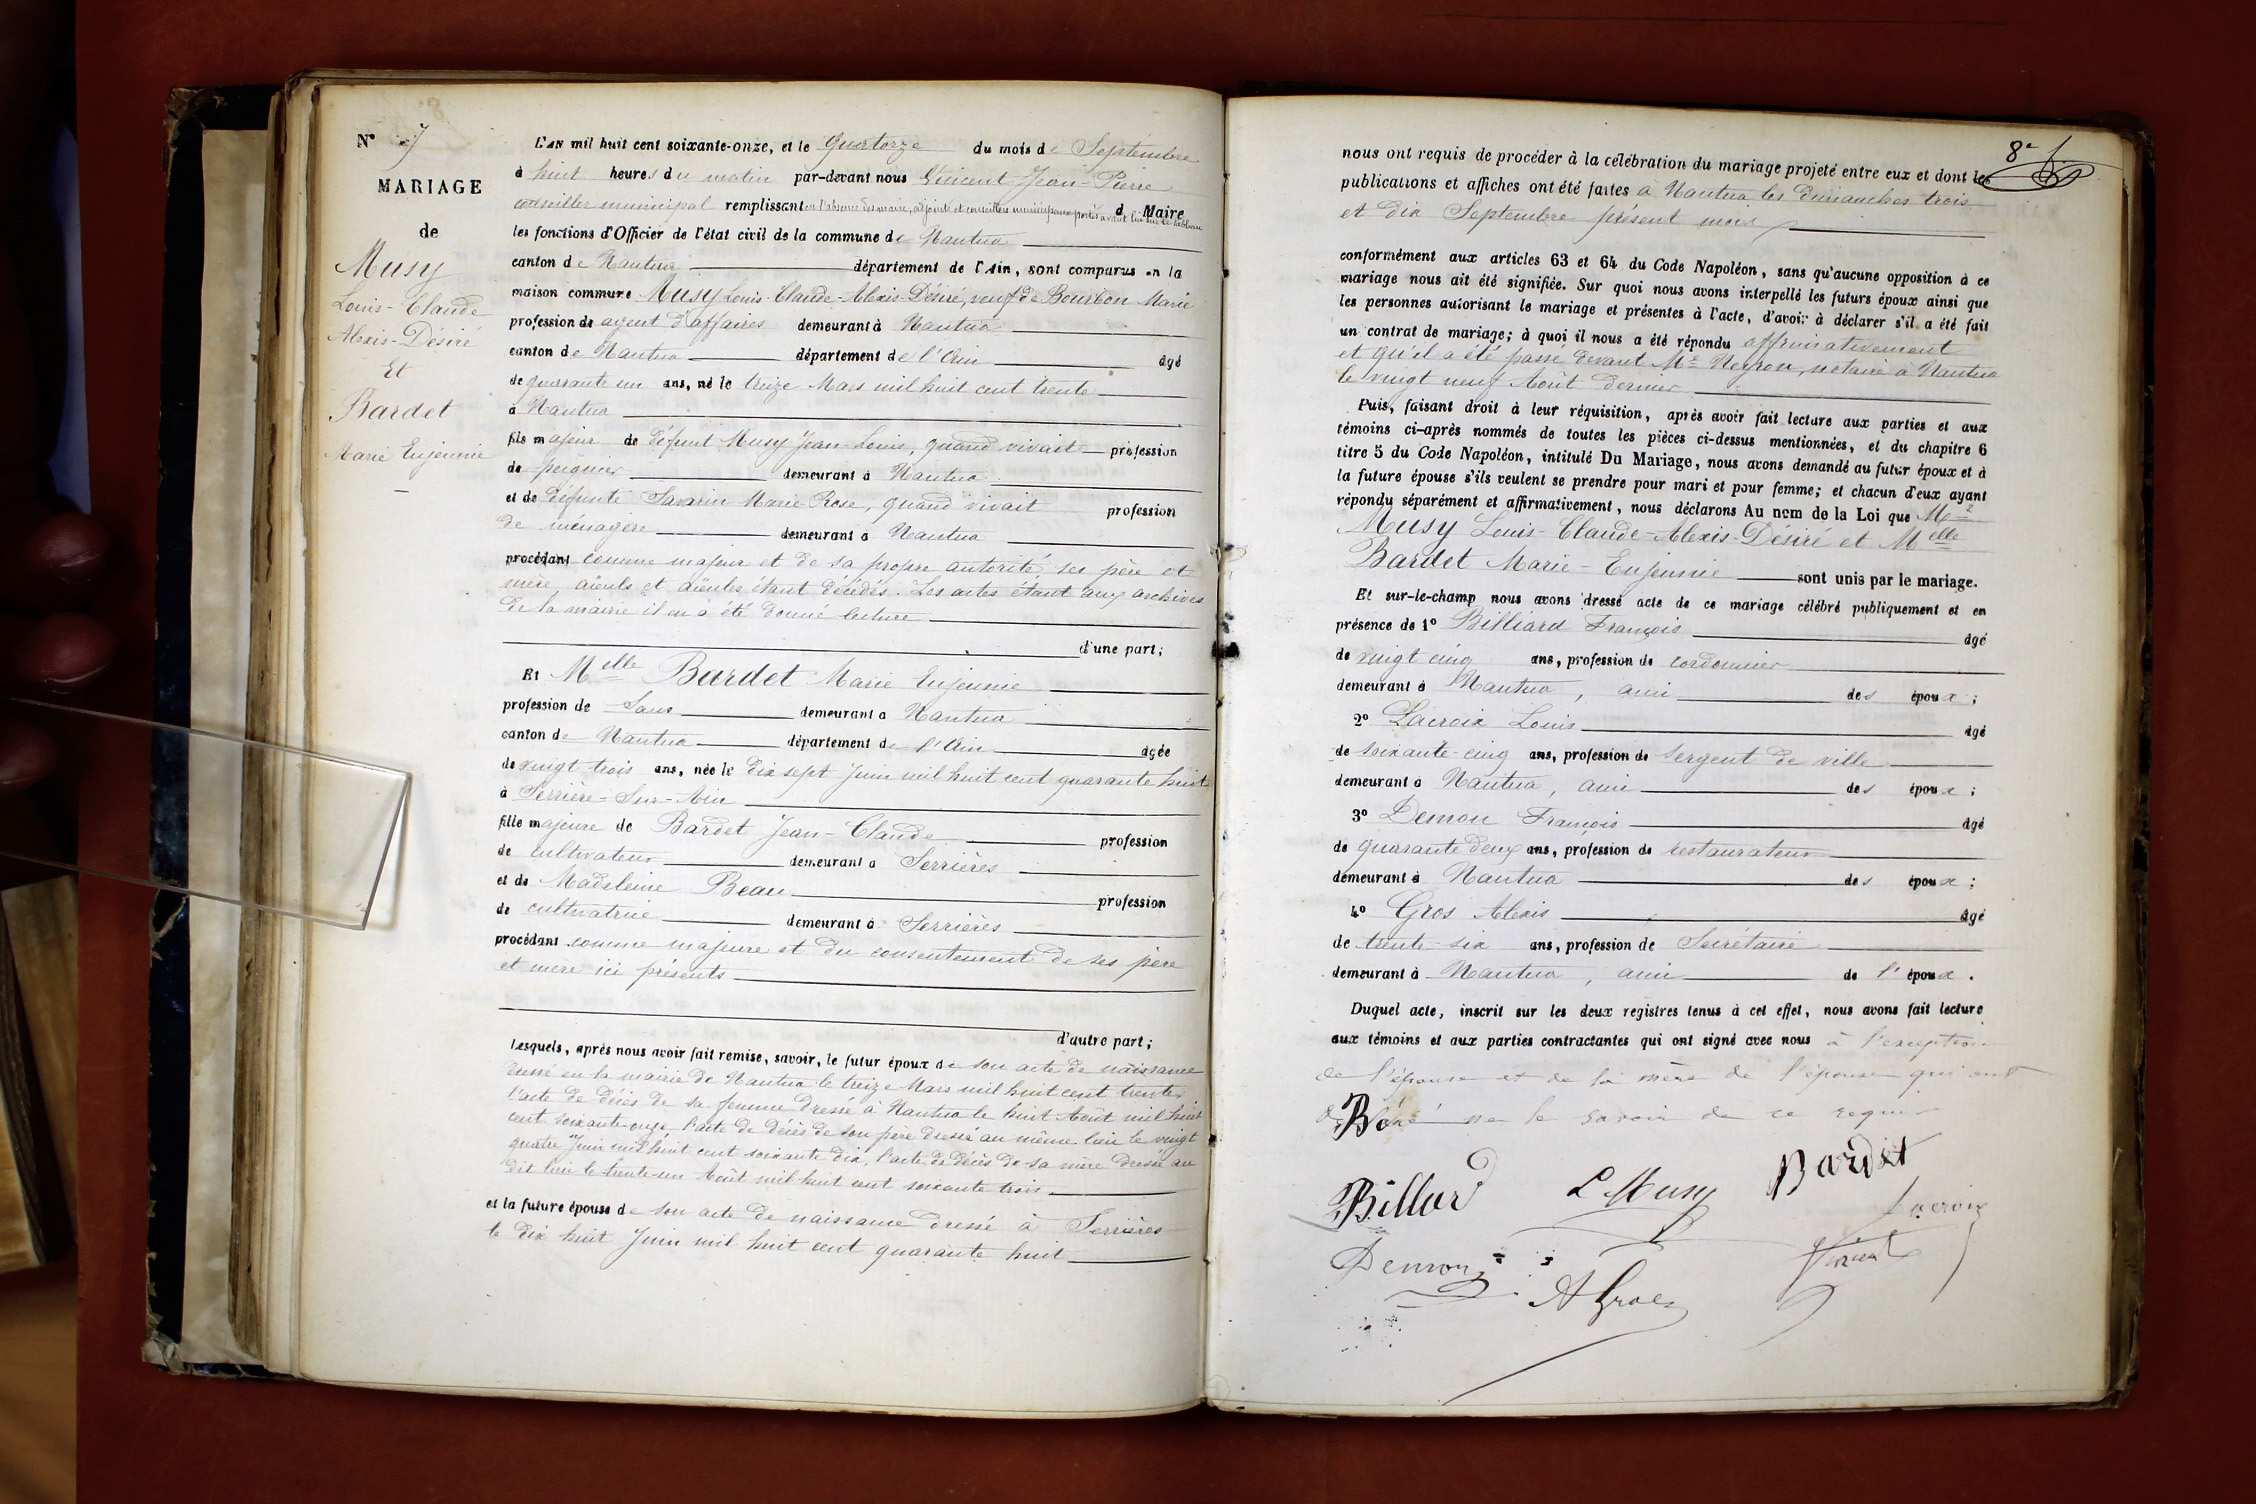 N° 7
MARIAGE
de
Musy
Louis-Claude
Alexis-Désiré
Et
Bardet
Marie Eujennie
L'an mil huit cent soixante-onze, et le quatorze du mois de Septembre
à huit heures du matin par-devant nous Vincent Jean-Pierre
conseiller municipal remplissant en l'absence des maire, adjoints et conseillers municipaux portés avant lui sur le tableau d Maire
les fonctions d'Officier de l'état civil de la commune de Nantua
canton de Nantua département de l'Ain, sont comparus en la
maison commune Musy Louis-Claude-Alexis-Désiré, veuf de Bourbon Marie
profession de agent d'affaires demeurant à Nantua
canton de Nantua département de l'Ain âgé
de quarante un ans, né le treize Mars mil huit cent trente
à Nantua
fils majeur de défunt Musy Jean-Louis, quand vivait profession
de peignier demeurant à Nantua
et de défunte Savarin Marie Rose, quand vivait profession
de ménagère demeurant à Nantua
procédant comme majeur et de sa propre autorité, ses père et
mère, aïeuls et aïeules étant décédés. Les actes étant aux archives
de la mairie il en a été donné lecture
d'une part;
Et Melle Bardet Marie Eujennie
profession de Sans demeurant à Nantua
canton de Nantua département de l'Ain âgée
de vingt-trois ans, née le dix sept Juin mil huit cent quarante huit
à Serrière-Sur-Ain
fille majeure de Bardet Jean-Claude profession
de cultivateur demeurant à Serrières
et de Madeleine Beau profession
de cultivatrice demeurant à Serrières
procédant comme majeure et du consentement de ses père
et mère ici présents
d'autre part;
Lesquels, après nous avoir fait remise, savoir, le futur époux de son acte de naissance
dressé en la mairie de Nantua le treize Mars mil huit cent trente,
l'acte de décès de sa femme dressé à Nantua le huit Août mil huit
cent soixante-onze, l'acte de décès de son père dressé au même lieu le vingt
quatre Juin mil huit cent soixante dix, l'acte de décès de sa mère dressé au
dit lieu le trente-un Août mil huit cent soixante trois
et la future épouse de son acte de naissance dressé à Serrières
le dix huit Juin mil huit cent quarante huit
8e
nous ont requis de procéder à la célébration du mariage projeté entre eux et dont les
publications et affiches ont été faites à Nantua les dimanches trois
et dix Septembre présent mois
conformément aux articles 63 et 64 du Code Napoléon, sans qu'aucune opposition à ce
mariage nous ait été signifiée. Sur quoi nous avons interpellé les futurs époux ainsi que
les personnes autorisant le mariage et présentes à l'acte, d'avoir à déclarer s'il a été fait
un contrat de mariage; à quoi il nous a été répondu affirmativement
et qu'il a été passé devant Me Neyron, notaire à Nantua
le vingt neuf Août dernier
Puis, faisant droit à leur réquisition, après avoir fait lecture aux parties et aux
témoins ci-après nommés de toutes les pièces ci-dessus mentionnées, et du chapitre 6
titre 5 du Code Napoléon, intitulé Du Mariage, nous avons demandé au futur époux et à
la future épouse s'ils veulent se prendre pour mari et pour femme; et chacun d'eux ayant
répondu séparément et affirmativement, nous déclarons Au nom de la Loi que Mr
Musy Louis-Claude-Alexis-Désiré et Melle
Bardet Marie-Eujennie sont unis par le mariage.
Et sur-le-champ nous avons dressé acte de ce mariage célébré publiquement et en
présence de 1° Billiard François âgé
de vingt cinq ans, profession de cordonnier
demeurant à Nantua, ami des époux;
2° Lacroix Louis âgé
de soixante-cinq ans, profession de Sergent de ville
demeurant à Nantua, ami des époux;
3° Demon François âgé
de quarante deux ans, profession de restaurateur
demeurant à Nantua des époux;
4° Gros Alexis âgé
de trente-six ans, profession de Secrétaire
demeurant à Nantua, ami de l'époux.
Duquel acte, inscrit sur les deux registres tenus à cet effet, nous avons fait lecture
aux témoins et aux parties contractantes qui ont signé avec nous à l'exception
de l'épouse et de la mère de l'épouse qui ont
déclaré ne le savoir de ce requis
Billard L Musy Bardet
Lacroix
Demon Vincent
A Gros